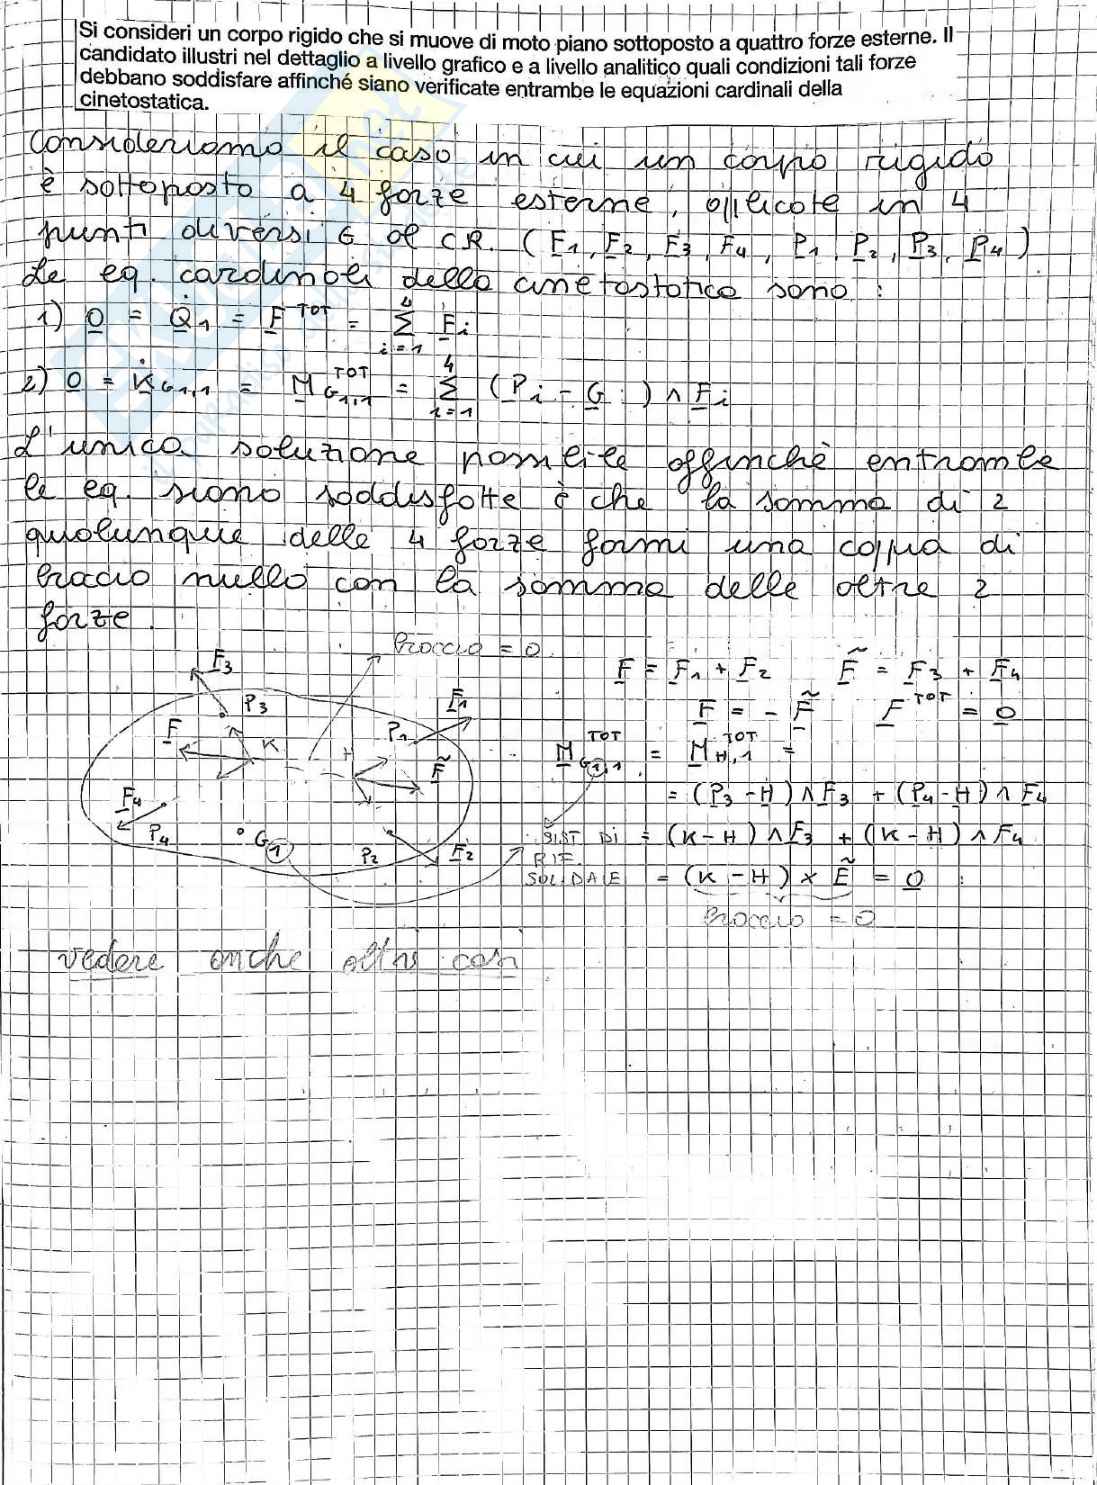 Si consideri un corpo rigido che si muove di moto piano sottoposto a quattro forze esterne. Il
candidato illustri nel dettaglio a livello grafico e a livello analitico quali condizioni tali forze
debbano soddisfare affinché siano verificate entrambe le equazioni cardinali della
cinetostatica.
Consideriamo il caso in cui un corpo rigido
è sottoposto a 4 forze esterne, applicate in 4
punti diversi ∈ al C.R. (F1, F2, F3, F4, P1, P2, P3, P4)
Le eq. cardinali della cinetostatica sono:
1) 0 = Q̇1 = F^TOT = Σ_{i=1}^{4} Fi
2) 0 = K̇G1,1 = M^TOT_{G1,1} = Σ_{i=1}^{4} (Pi - G) ∧ Fi
L'unica soluzione possibile affinchè entrambe
le eq. siano soddisfatte è che la somma di 2
qualunque delle 4 forze formi una coppia di
braccio nullo con la somma delle altre 2
forze.
braccio = 0
F3
P3
F
K
H
P1
F1
F̃
F4
P4
G1
P2
F2
F = F1 + F2 F̃ = F3 + F4
F = - F̃ F^TOT = 0
M^TOT_{G1,1} = M^TOT_{H,1} =
= (P3 - H) ∧ F3 + (P4 - H) ∧ F4
SIST DI = (K - H) ∧ F3 + (K - H) ∧ F4
RIF.
SOLIDALE = (K - H) × F̃ = 0
braccio = 0
vedere anche altri casi